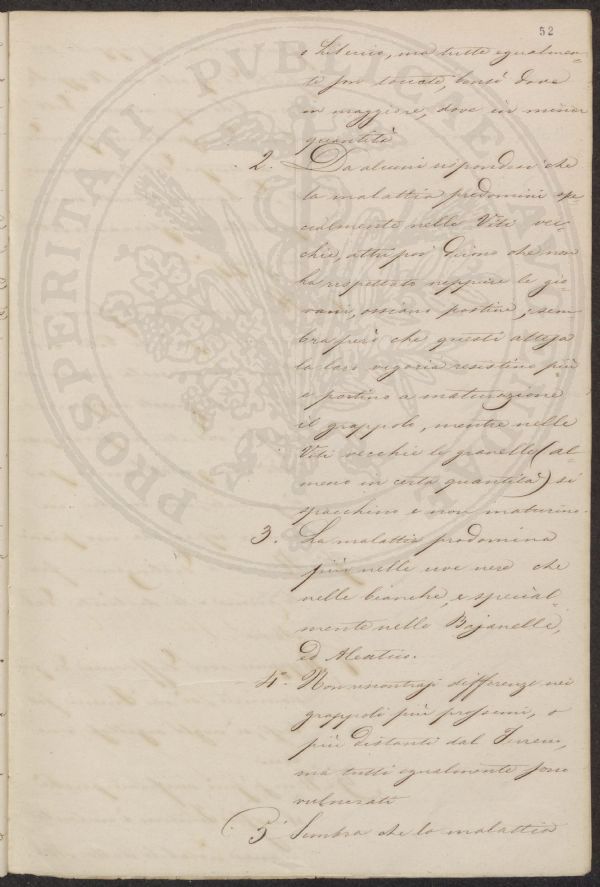 52
ma tutte egualmen-
te son toccate, bensì dove
in maggiore, dove in minor
quantità
2. Da alcuni rispondesi che
la malattia predomini spe-
cialmente nelle Viti vec-
chie, altri poi dicono che non
ha rispettato neppure le gio-
vani, ossiano postine; sem-
bra però che questi attesa
la loro vegoria resistino più
e portino a maturazione
il grappolo, mentre nelle
Viti vecchie le granelle (al-
meno in certa quantità) si
spacchino e non maturino.
3. La malattia predomina
più nelle uve nere che
nelle bianche, e special-
mente nelle Bajanelle,
ed Aleatico.
4. Non riscontrasi differenze nei
grappoli più prossimi, o
più distanti dal Terreno,
ma tutti egualmente sono
vulnerati
5 Sembra che la malattia
PROSPERITATI PUBLICAE AUGENDAE